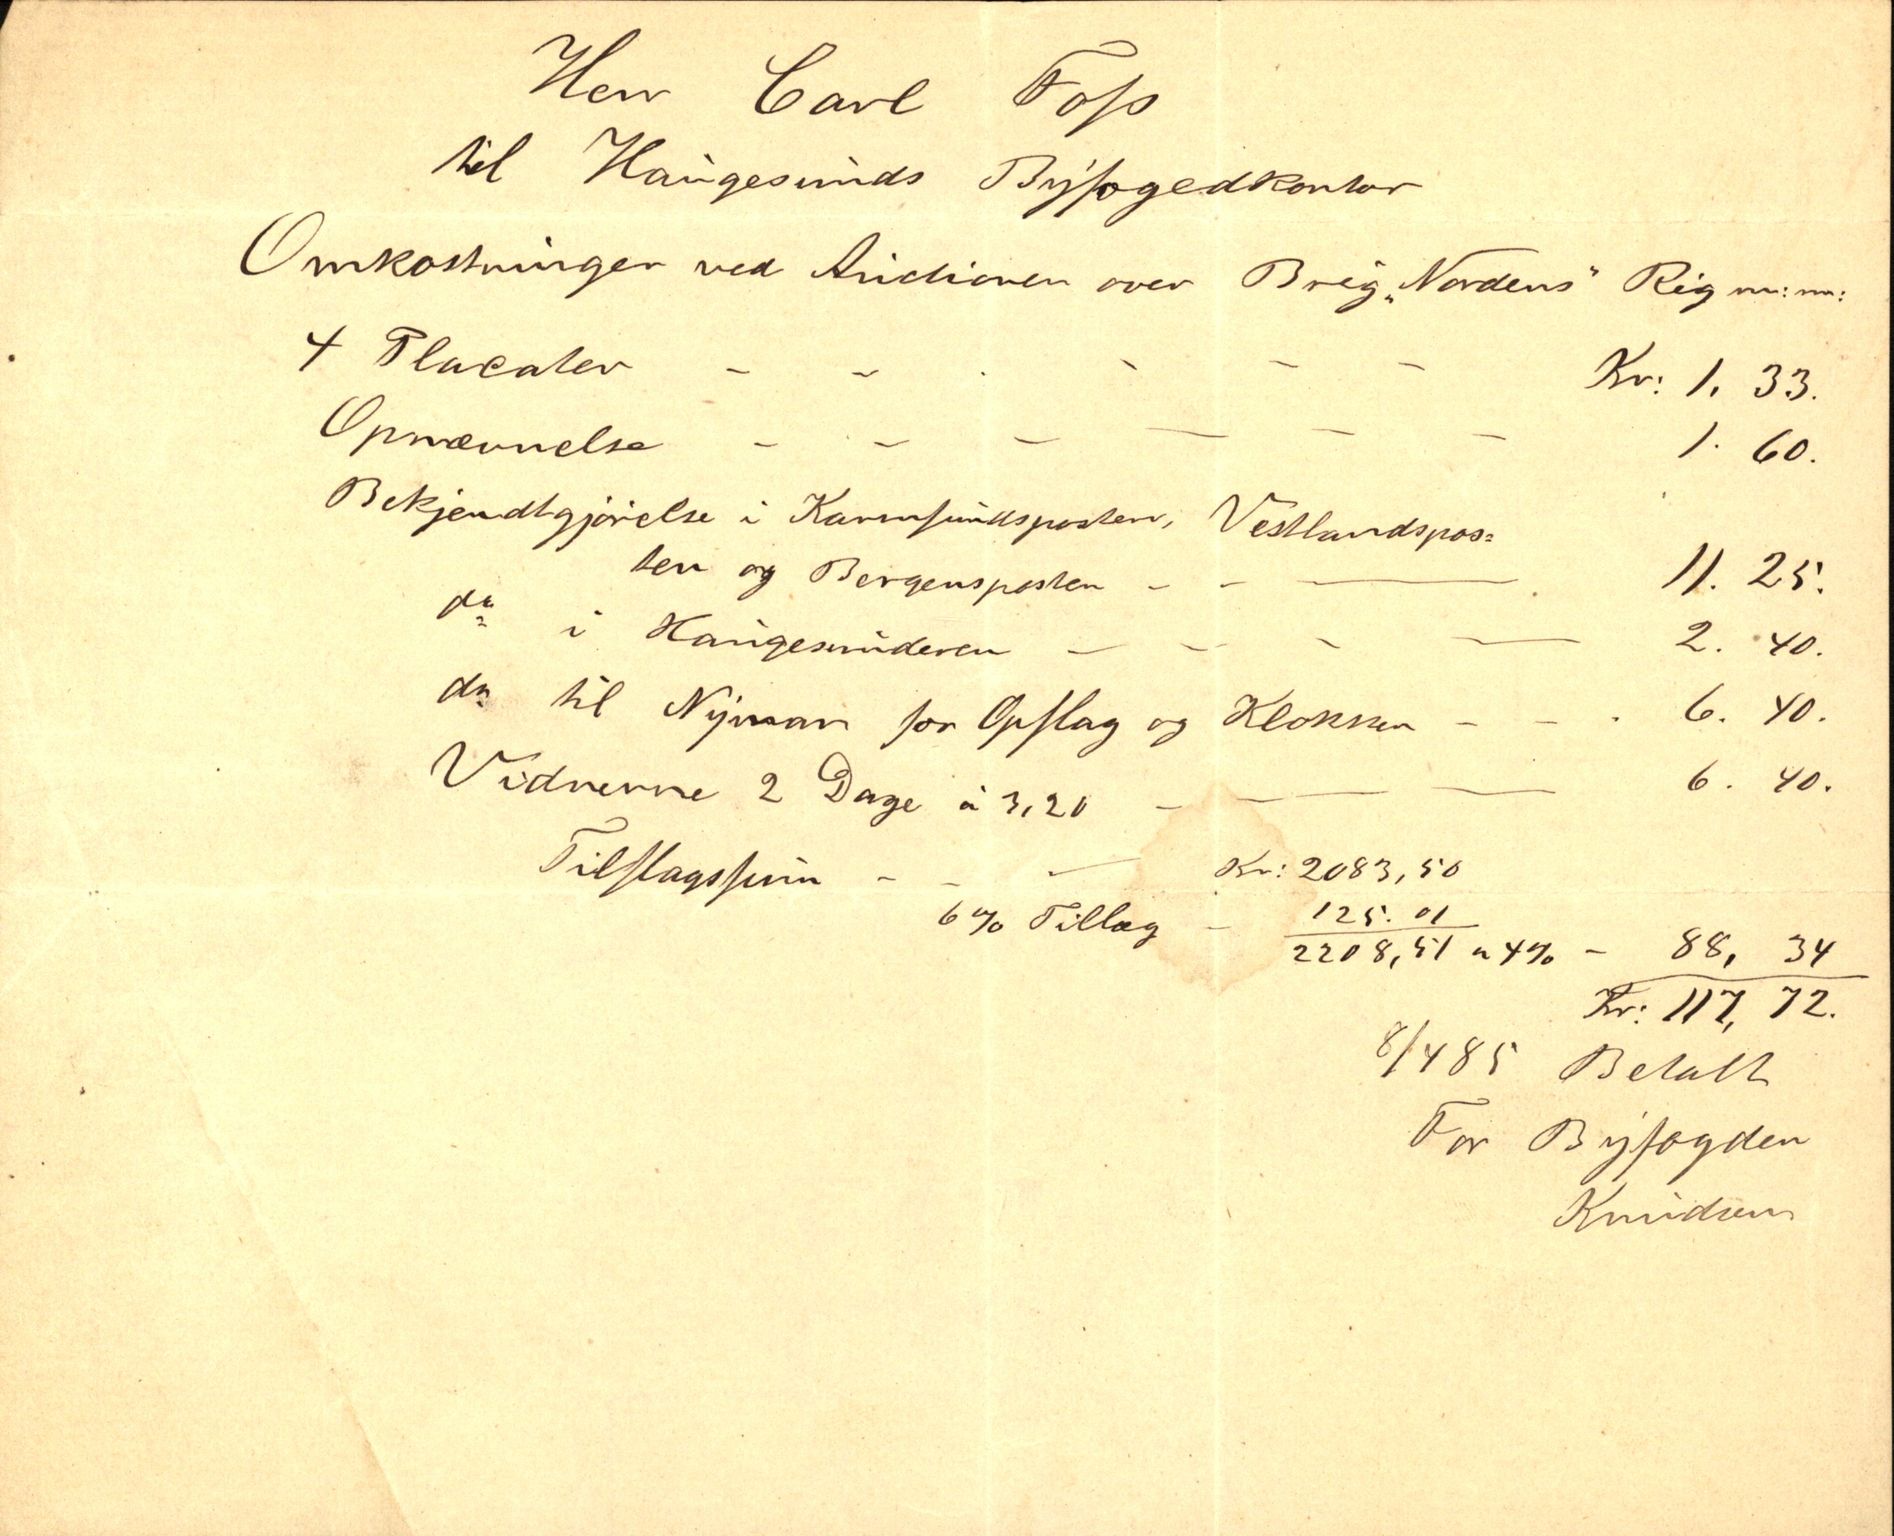 Herr Carl Foss
til Haugesunds Byfogedkontor
Omkostninger ved Auctionen over Brig „Nordens" Rig m: m:
4 Placater - - - - - - Kr: 1, 33.
Opnævnelse - - - - - - 1. 60.
Bekjendtgjörelse i Karmsundsposten, Vestlandspos=
ten og Bergensposten - - - 11. 25.
do i Haugesunderen - - - - 2. 40.
do til Nyman for Opslag og Klokken - - - 6. 40.
Vidnerne 2 Dage à 3,20 - - - 6. 40.
Tilslagssum - - - Kr: 2083,50
6% Tillæg - 125. 01
2208,51 a 4% - 88, 34
Kr: 117, 72.
8/4 85 Betalt
For Byfogden
Knudsen